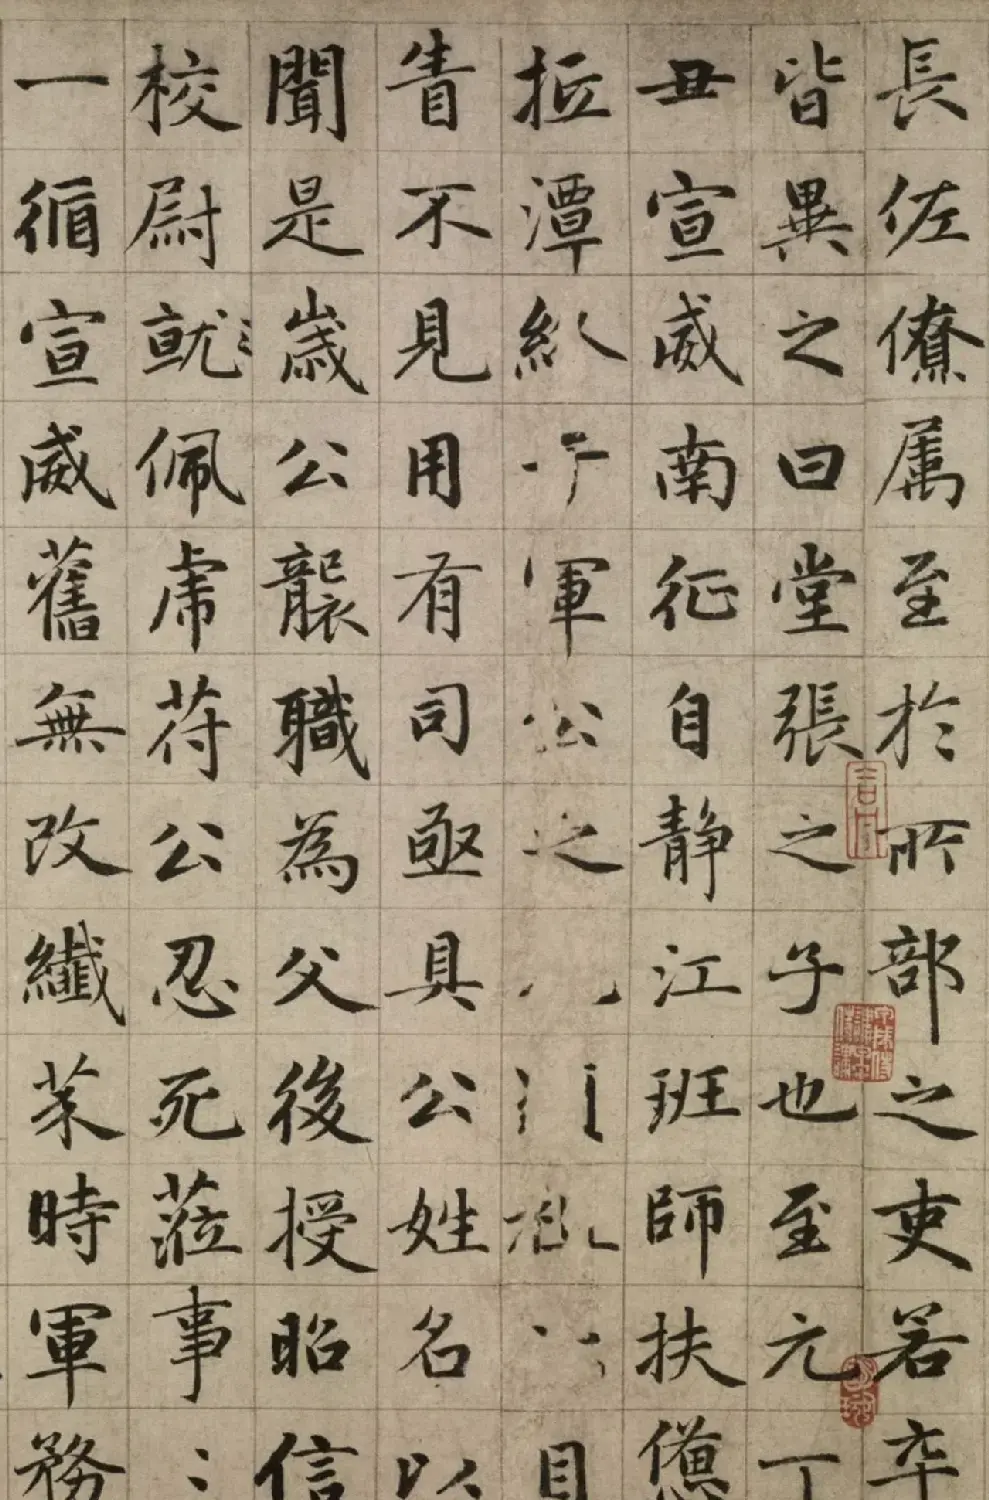 長佐僚属至於所部之吏若卒
皆異之曰堂張之子也至元丁
丑宣威南征自静江班師扶憊
抵潭紏于軍公之
眚不見用有司亟具公姓名以
聞是歳公襲職為父後授昭信
校尉就佩虎苻公忍死蒞事
一循宣威舊無改纎芥時軍務